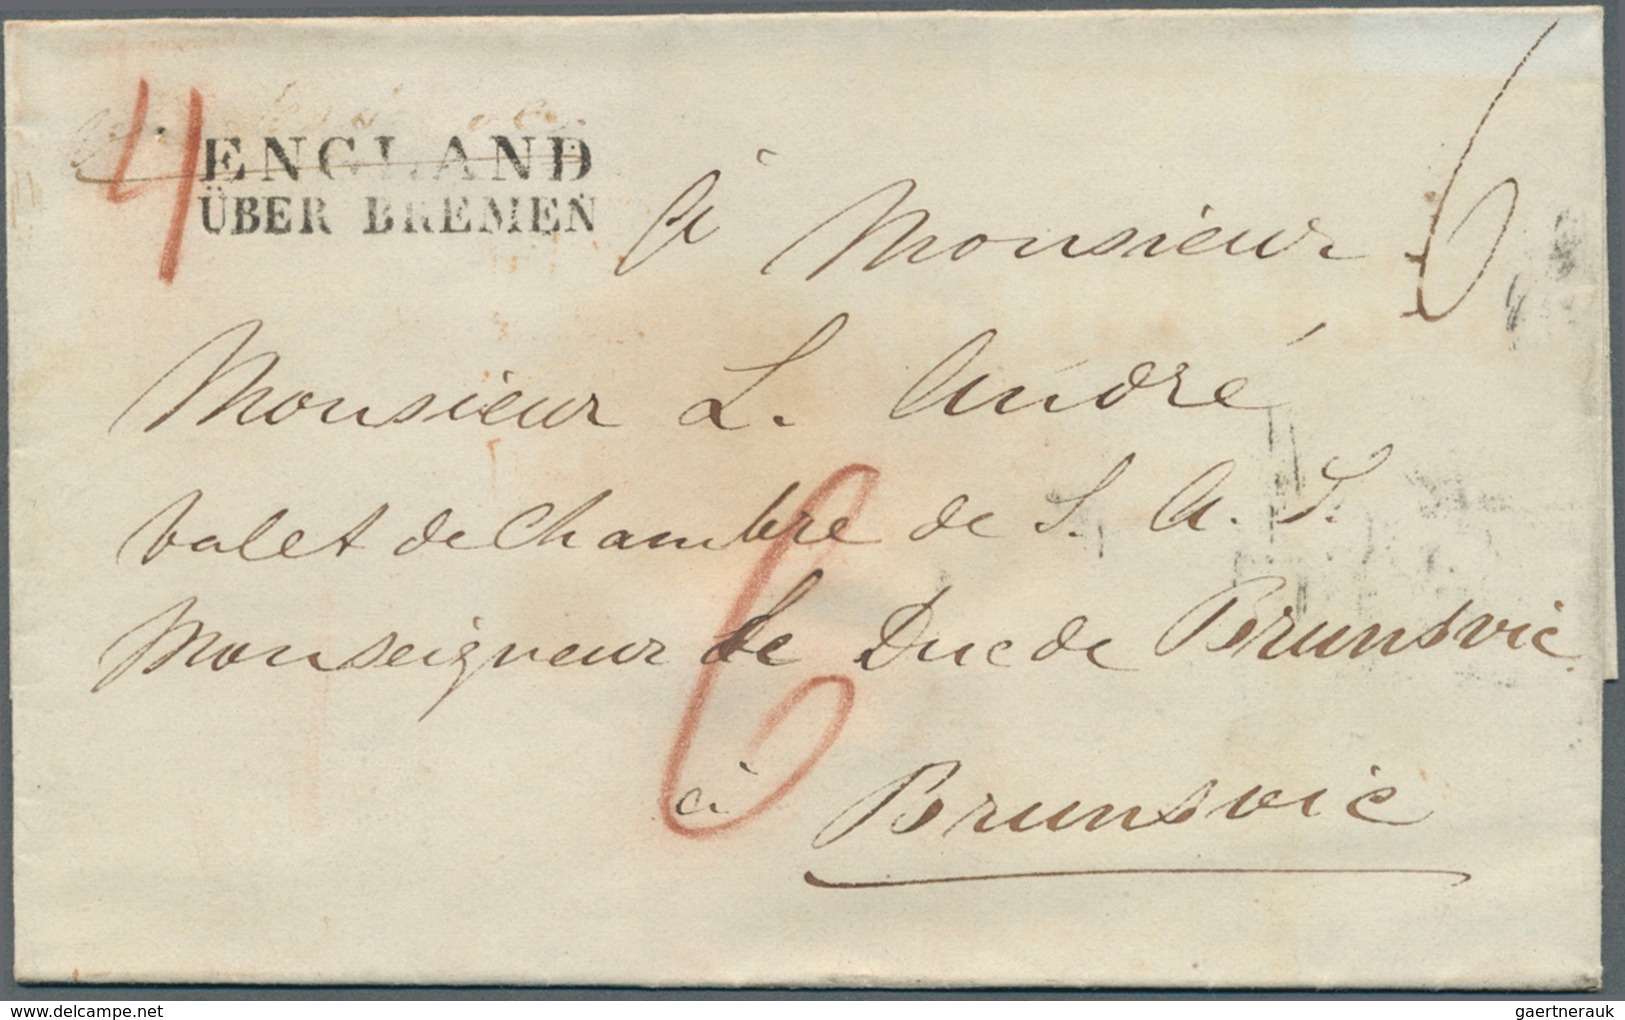 4
ENGLAND
ÜBER BREMEN
à Monsieur
6
Monsieur L. André
valet de Chambre de S. A. S.
Monseigneur le Duc de Brunsvic
6
à Brunsvic
gaertnerauk